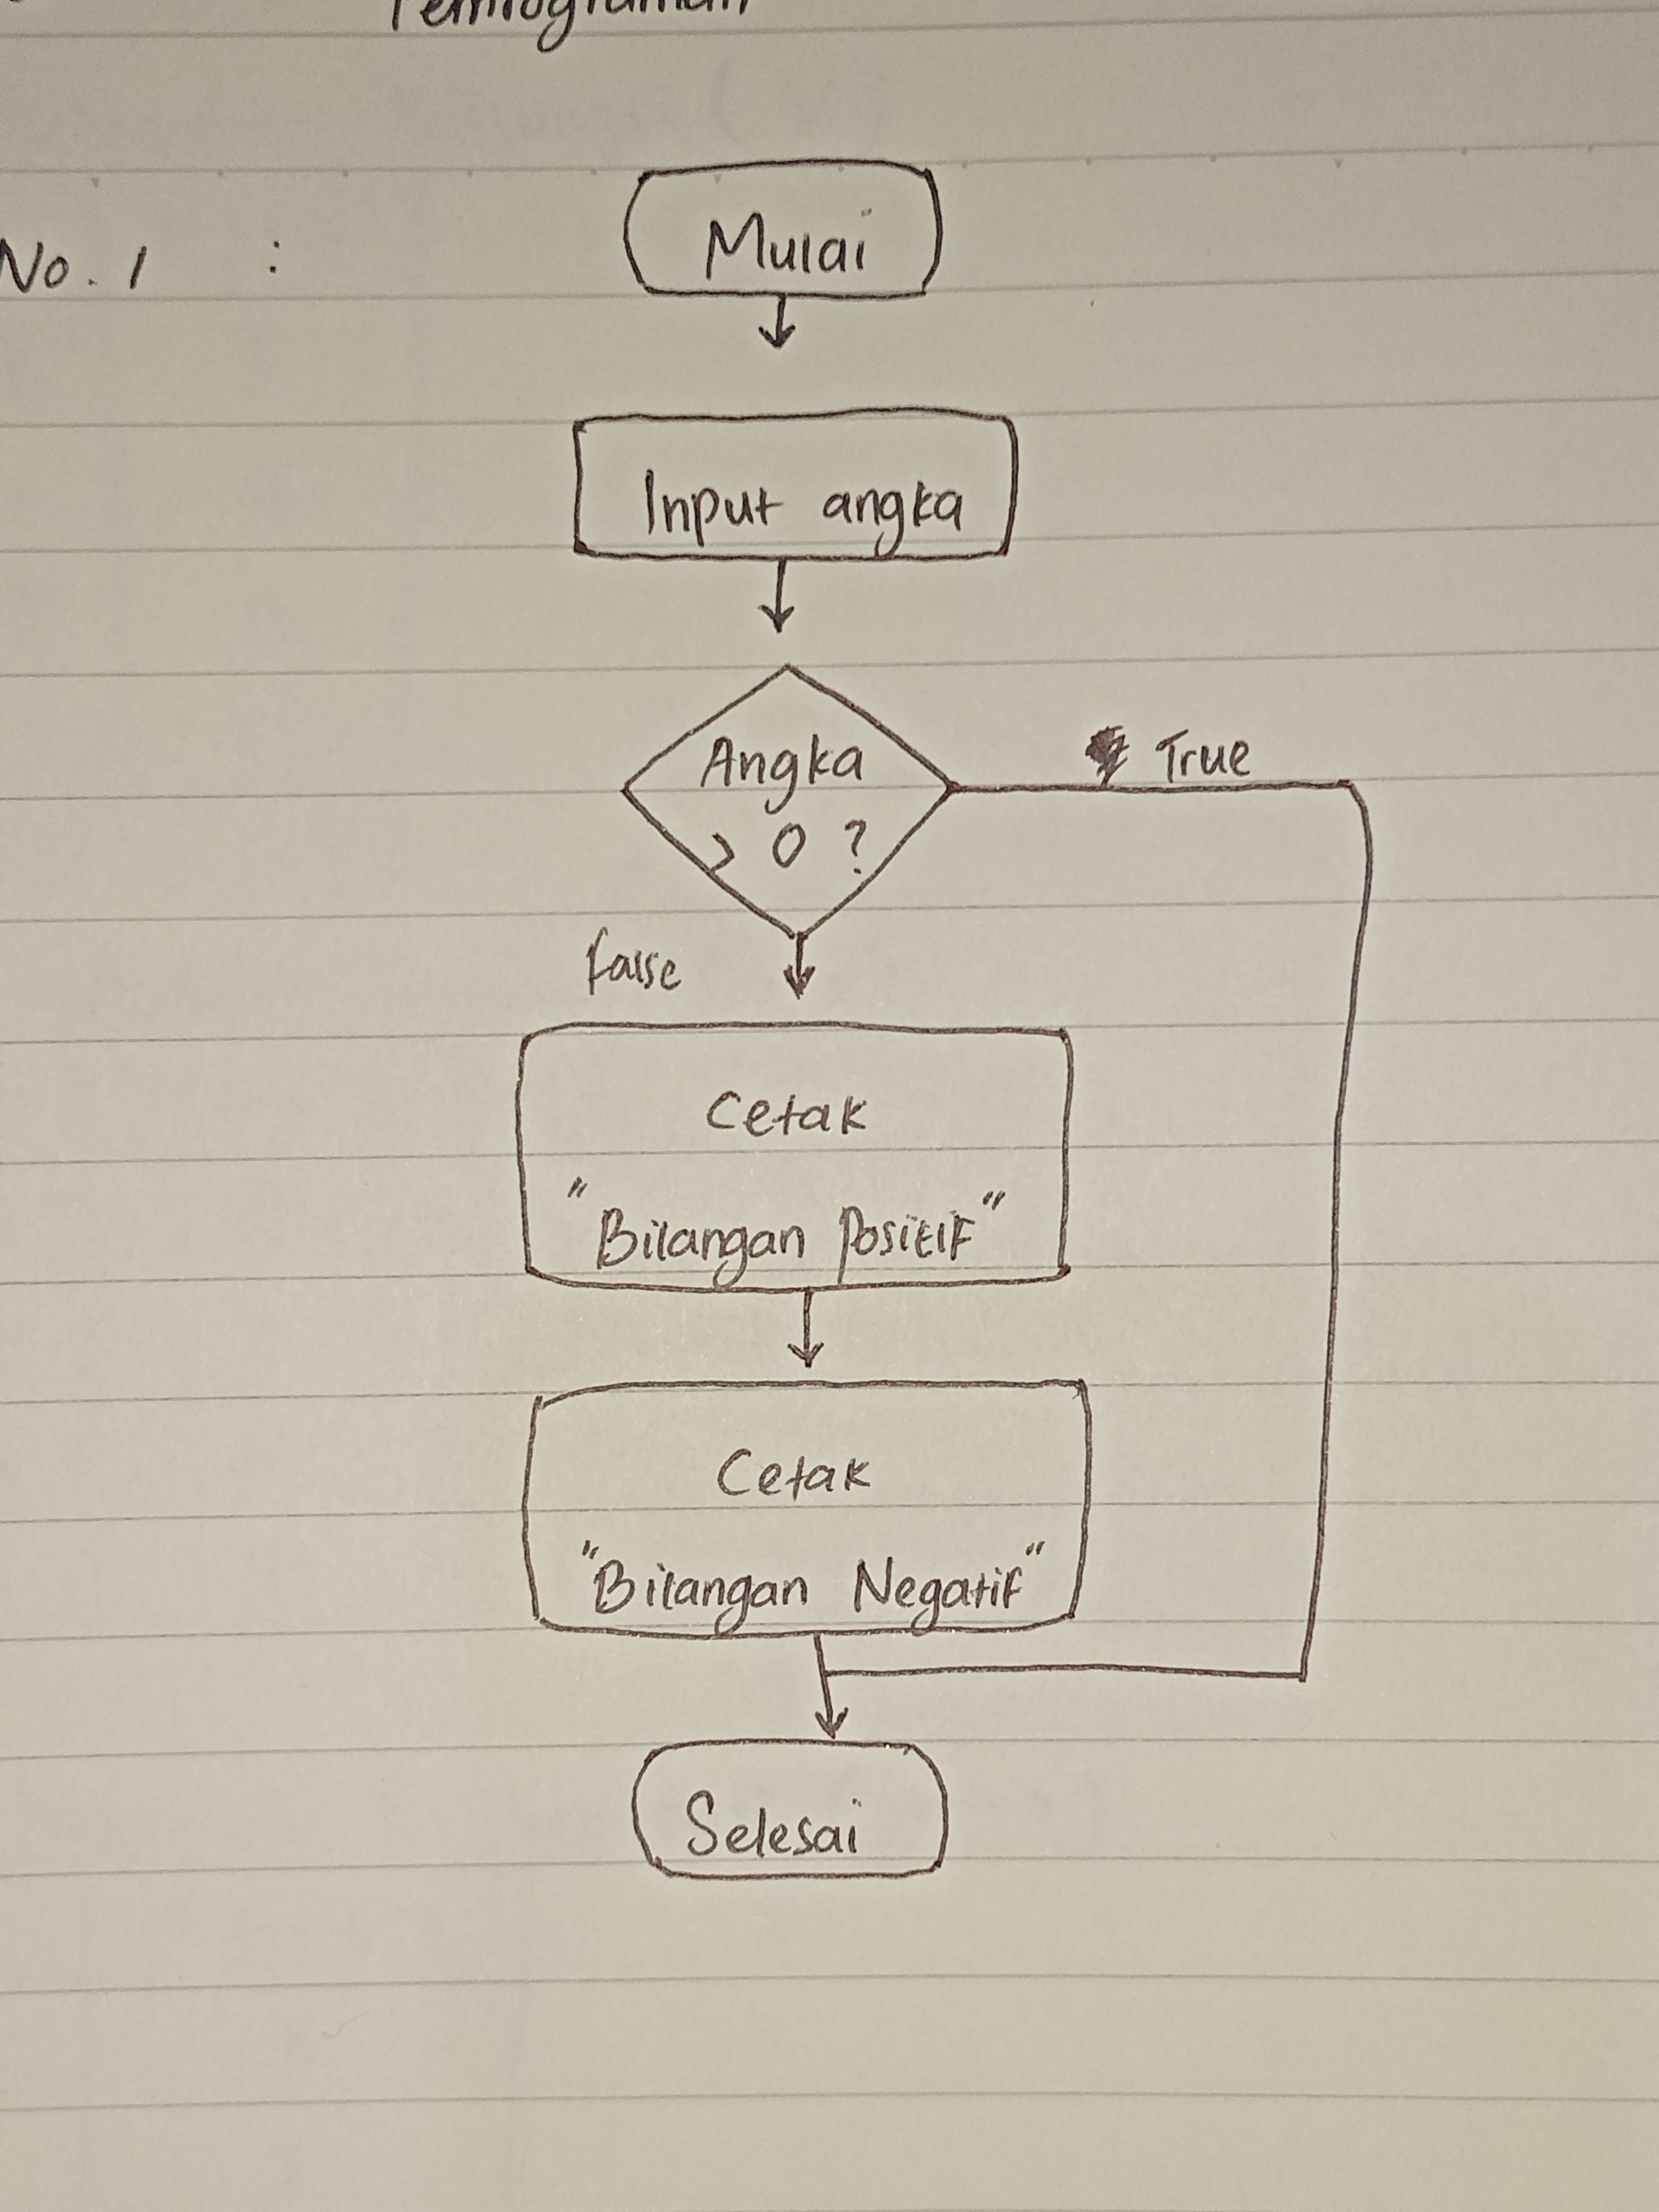 Pemrograman
No. 1 :
Mulai
Input angka
Angka
> 0 ?
True
false
Cetak
"Bilangan Positif"
Cetak
"Bilangan Negatif"
Selesai